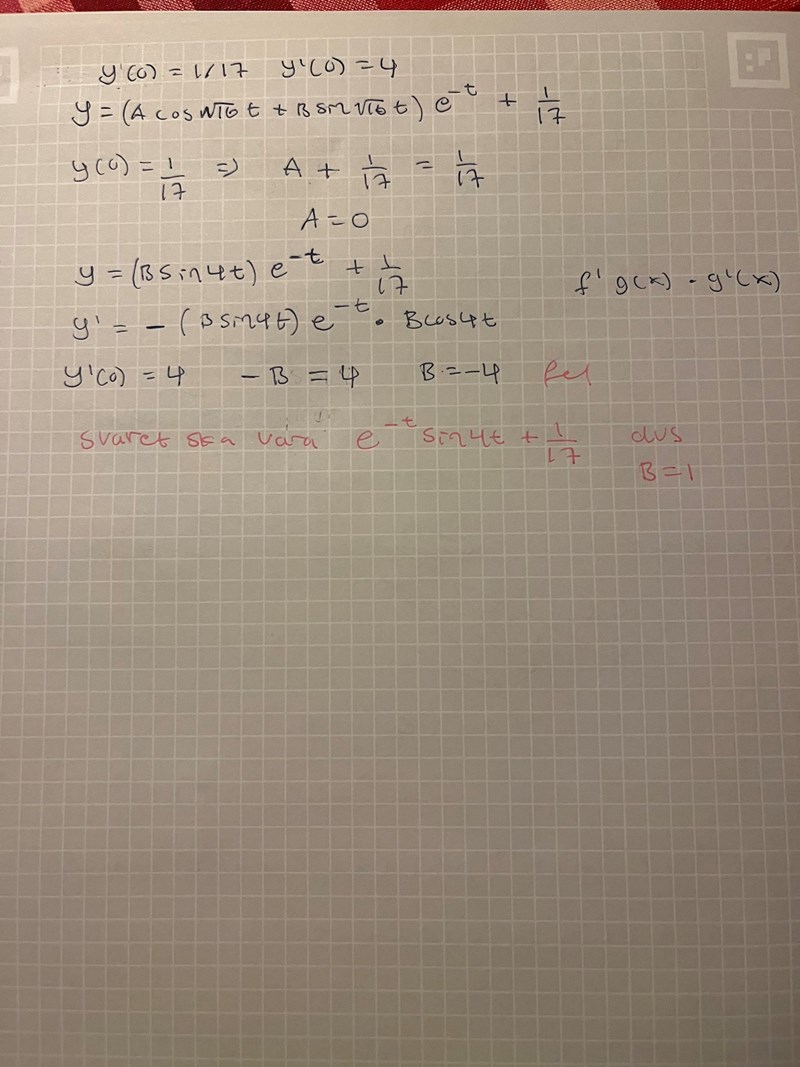 y'(0) = 1/17 y'(0) = 4
y = (A cos √16 t + B sin √16 t) e^-t + 1/17
y(0) = 1/17 => A + 1/17 = 1/17
A = 0
y = (B sin 4t) e^-t + 1/17
f' g(x) - g'(x)
y' = - (B sin 4t) e^-t · B cos 4t
y'(0) = 4 - B = 4 B = -4 Fel
svaret ska vara e^-t sin 4t + 1/17 dvs
B = 1